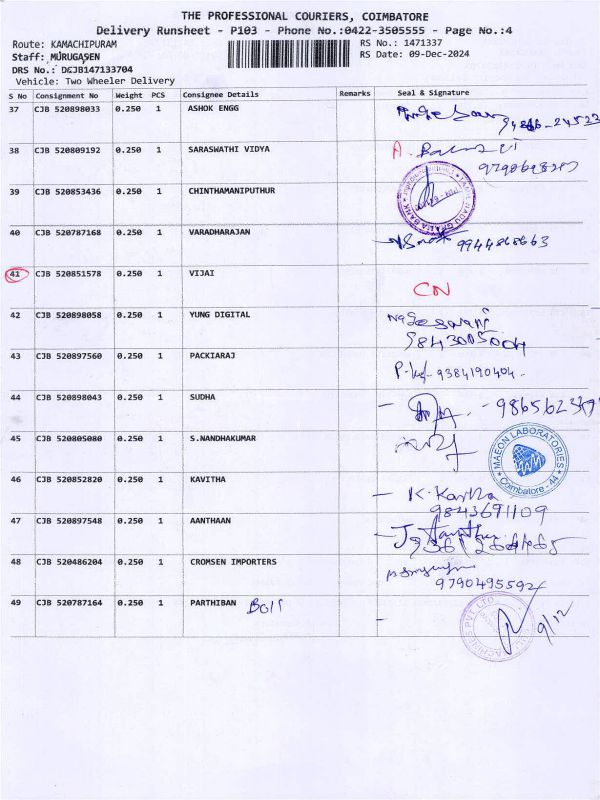 THE PROFESSIONAL COURIERS, COIMBATORE
Delivery Runsheet - P103 - Phone No.:0422-3505555 - Page No.:4
Route: KAMACHIPURAM RS No.: 1471337
Staff: MURUGASEN RS Date: 09-Dec-2024
DRS No.: DCJB147133704
Vehicle: Two Wheeler Delivery
S No Consignment No Weight PCS Consignee Details Remarks Seal & Signature
37 CJB 520898033 0.250 1 ASHOK ENGG
38 CJB 520809192 0.250 1 SARASWATHI VIDYA A.
39 CJB 520853436 0.250 1 CHINTHAMANIPUTHUR
40 CJB 520787168 0.250 1 VARADHARAJAN
41 CJB 520851578 0.250 1 VIJAI CN
42 CJB 520898058 0.250 1 YUNG DIGITAL
9843005004
43 CJB 520897560 0.250 1 PACKIARAJ 9384190404
44 CJB 520898043 0.250 1 SUDHA
45 CJB 520805080 0.250 1 S.NANDHAKUMAR MAEON LABORATORIES Coimbatore - 44
46 CJB 520852820 0.250 1 KAVITHA K. Kavitha
9843691109
47 CJB 520897548 0.250 1 AANTHAAN
48 CJB 520486204 0.250 1 CROMSEN IMPORTERS
9790495592
49 CJB 520787164 0.250 1 PARTHIBAN Boll 9/12